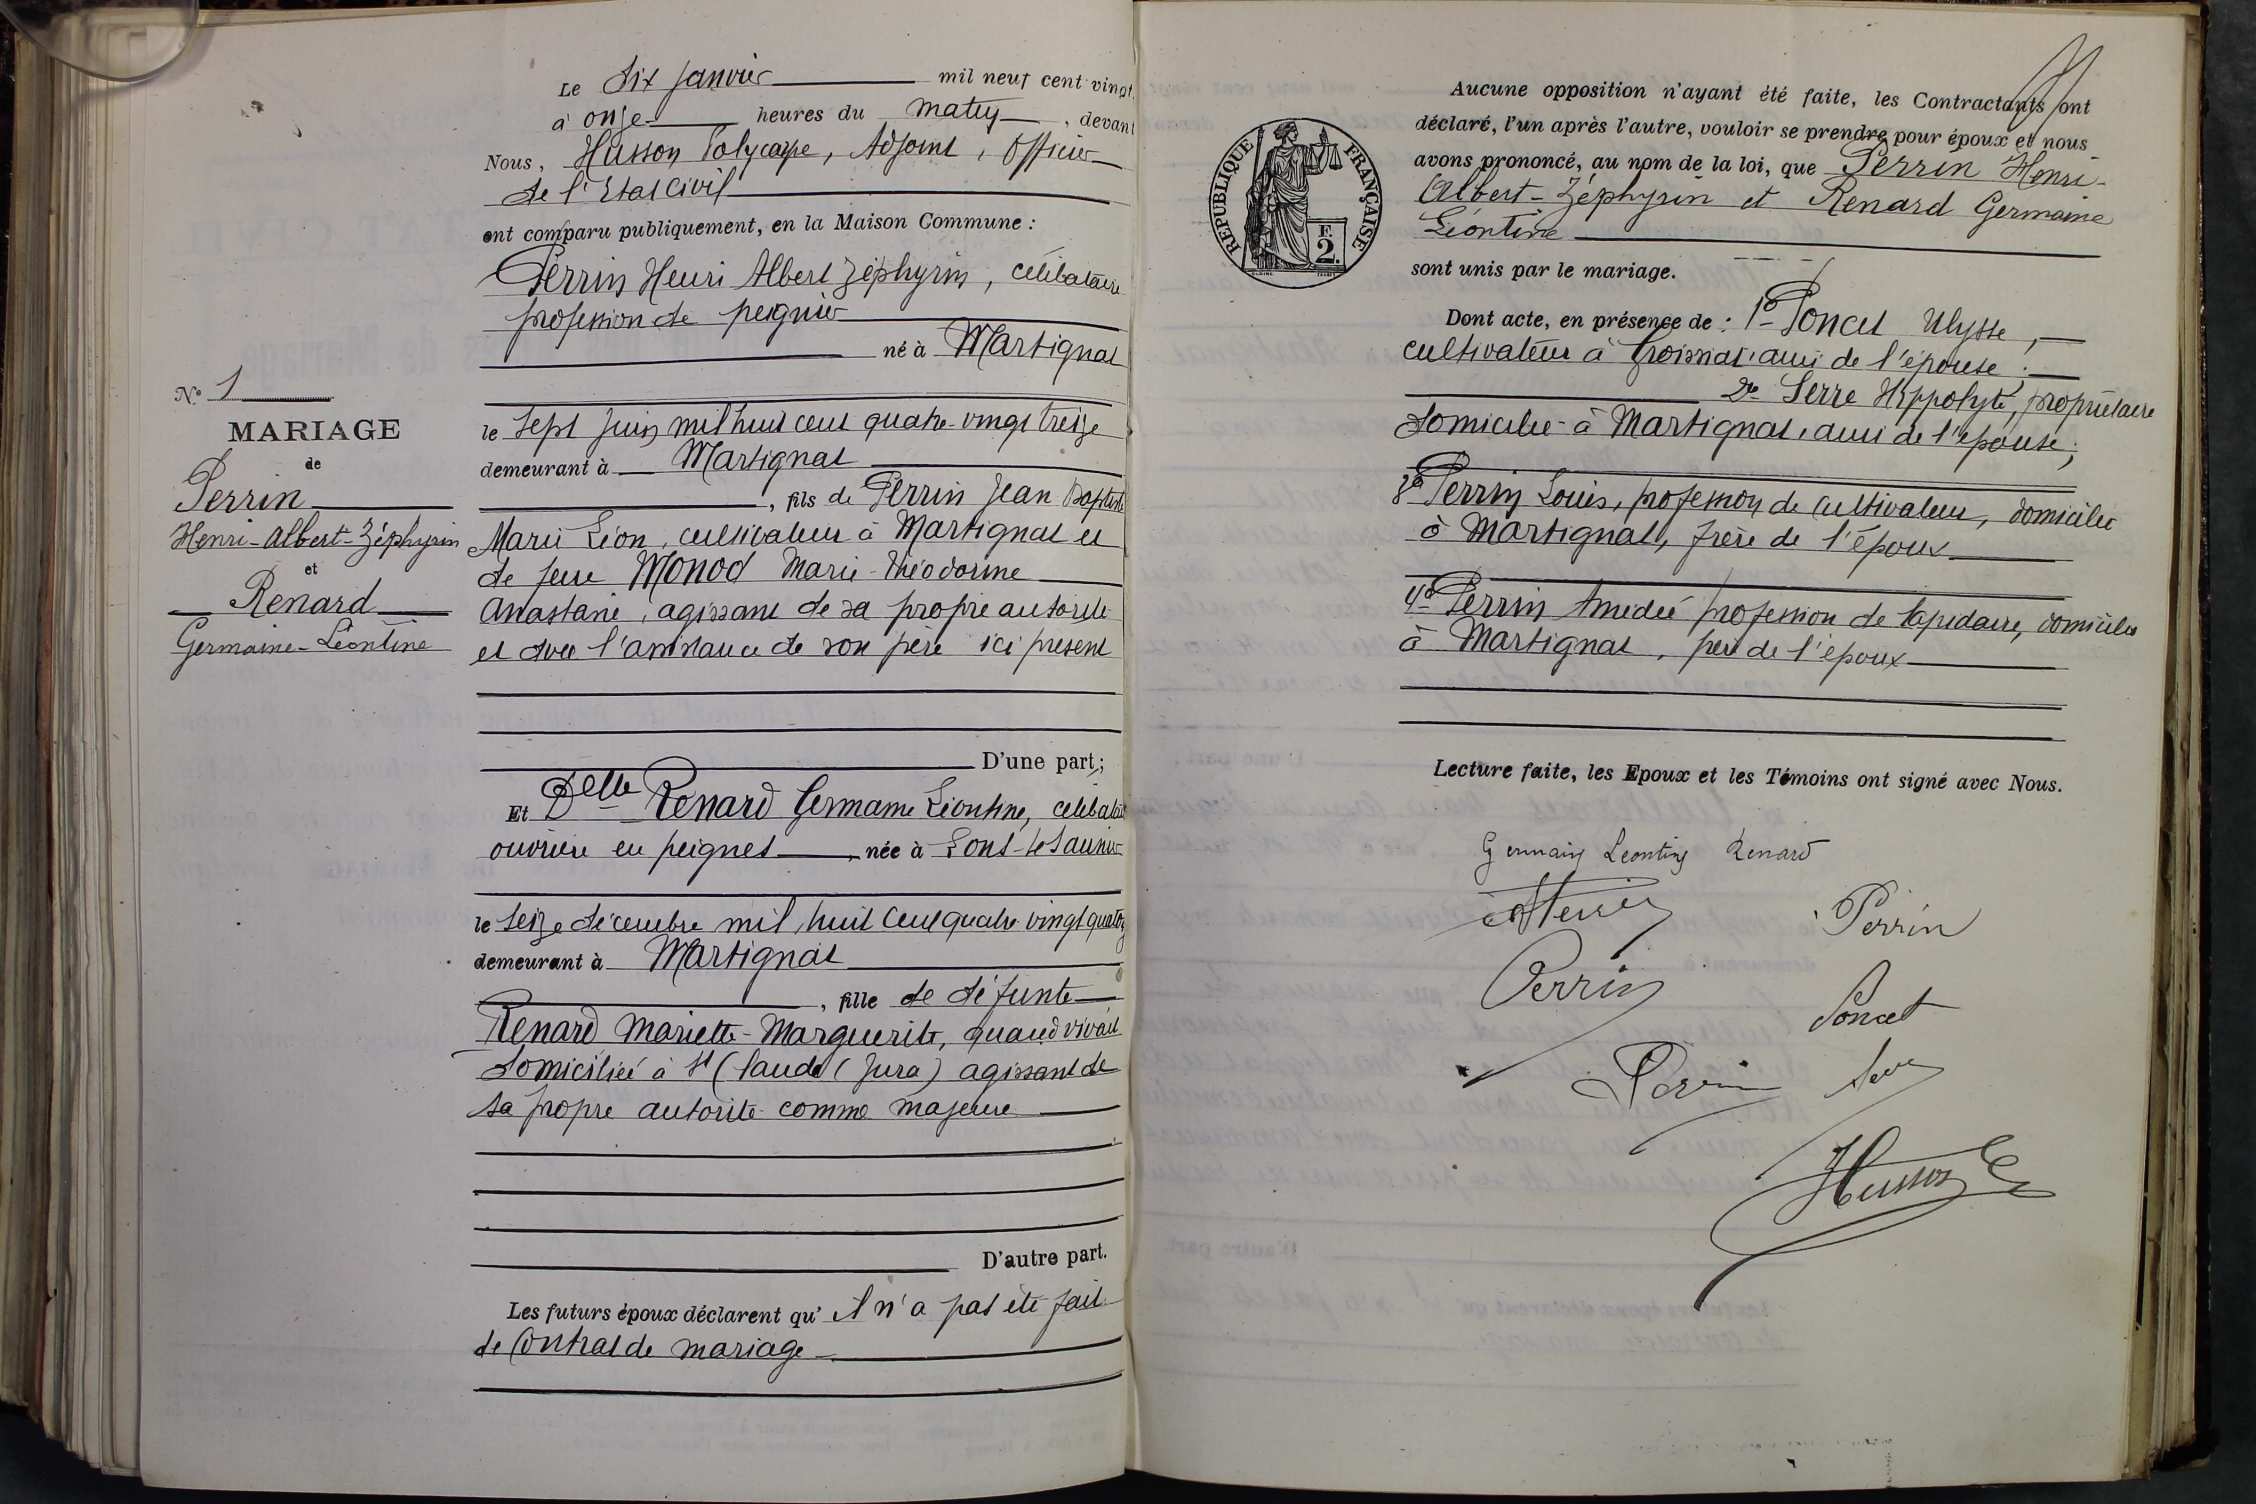 Le six janvier mil neuf cent vingt
à onze heures du matin, devant
Nous, Husson Polycarpe, Adjoint, Officier
de l'Etat Civil
ont comparu publiquement, en la Maison Commune :
Perrin Henri Albert Zéphyrin, célibataire
profession de peignier
né à Martignat
le sept juin mil huit cent quatre-vingt treize
demeurant à Martignat
, fils de Perrin Jean Baptiste
Marie Léon, cultivateur à Martignat et
de feue Monod Marie-Théodorine
Anastasie, agissant de sa propre autorité
et avec l'assistance de son père ici présent
D'une part;
Et Delle Renard Germaine Léontine, célibataire
ouvrière en peignes, née à Lons-le-Saunier
le seize décembre mil huit cent quatre vingt quatorze
demeurant à Martignat
, fille de défunte
Renard Mariette-Marguerite, quand vivait
domiciliée à St Claude (Jura) agissant de
sa propre autorité comme majeure
D'autre part.
Les futurs époux déclarent qu'il n'a pas été fait
de Contrat de mariage
N° 1
MARIAGE
de
Perrin
Henri-Albert-Zéphyrin
et
Renard
Germaine-Léontine
RÉPUBLIQUE FRANÇAISE
F.
2.
Aucune opposition n'ayant été faite, les Contractants ont
déclaré, l'un après l'autre, vouloir se prendre pour époux et nous
avons prononcé, au nom de la loi, que Perrin Henri-
Albert-Zéphyrin et Renard Germaine
Léontine
sont unis par le mariage.
Dont acte, en présence de : 1° Poncet Ulysse,
cultivateur à Groissiat, ami de l'épouse ;
2° Serre Hyppolyte, propriétaire
domicilié à Martignat, ami de l'épouse ;
3° Perrin Louis, profession de cultivateur, domicilié
à Martignat, frère de l'époux
4° Perrin Amédée profession de lapidaire, domicilié
à Martignat, de l'époux
Lecture faite, les Epoux et les Témoins ont signé avec Nous.
Germaine Leontine Renard
Perrin
Perrin
Poncet
Perrin
Serre
Husson